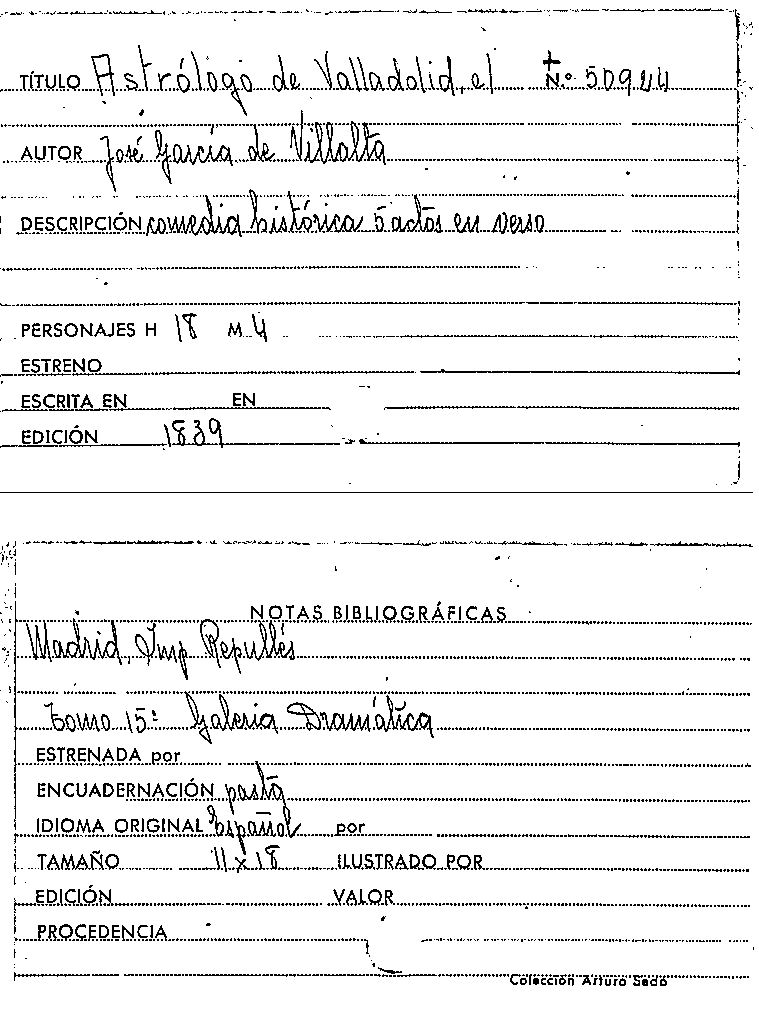 TÍTULO Astrólogo de Valladolid, el N.º 50924
AUTOR José García de Villalta
DESCRIPCIÓN comedia histórica 5 actos en verso
PERSONAJES H 18 M. 4
ESTRENO
ESCRITA EN EN
EDICIÓN 1839
NOTAS BIBLIOGRÁFICAS
Madrid, Imp Repullés
Tomo 15º Galeria Dramática
ESTRENADA por
ENCUADERNACIÓN pasta
IDIOMA ORIGINAL Español por
TAMAÑO 11 x 18 ILUSTRADO POR
EDICIÓN VALOR
PROCEDENCIA
Colección Arturo Sedó